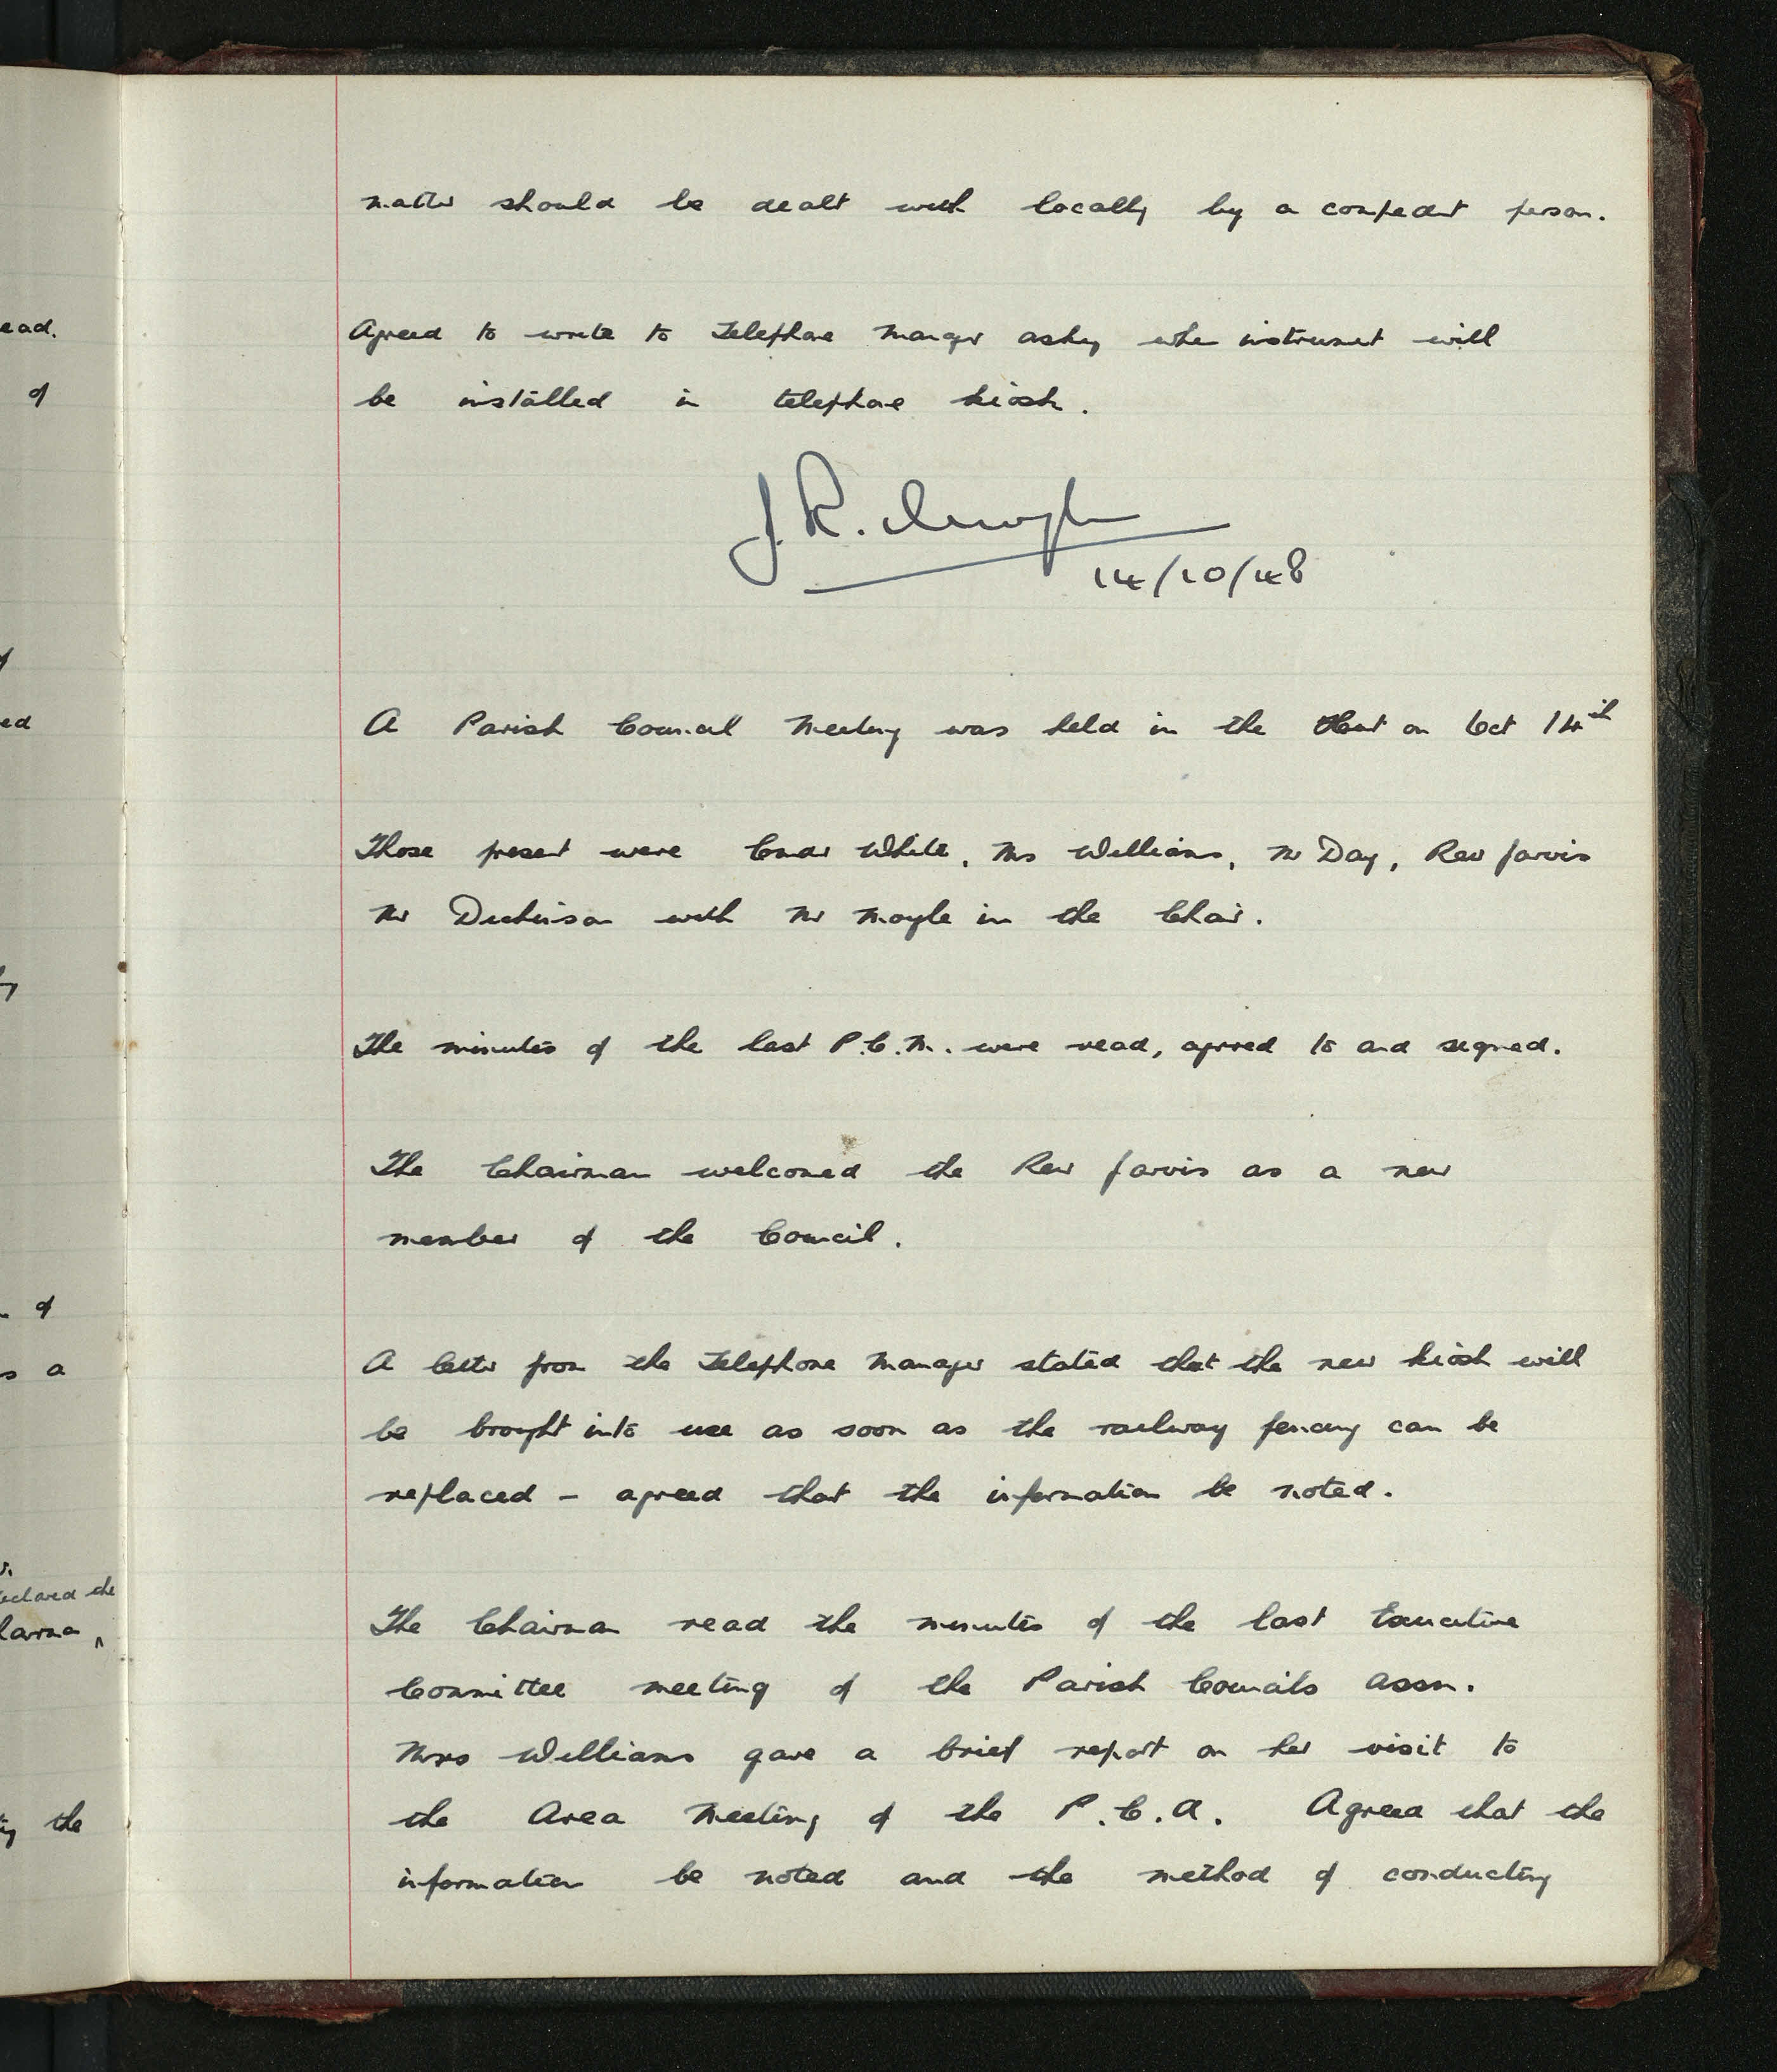 matter should be dealt with locally by a competent person.
Agreed to write to Telephone Manager asking when instrument will
be installed in telephone kiosk.
J.R.
14/10/48
A Parish Council Meeting was held in the Hut on Oct 14th
Those present were Cmdr White, Mrs Williams, Mr Day, Rev Jarvis
Mr Dickinson with Mr Moyle in the Chair.
The minutes of the last P.C.M. were read, agreed to and signed.
The Chairman welcomed the Rev Jarvis as a new
member of the Council.
A letter from the Telephone Manager stated that the new kiosk will
be brought into use as soon as the railway fencing can be
replaced - agreed that the information be noted.
The Chairman read the minutes of the last Executive
Committee meeting of the Parish Councils Assn.
Mrs Williams gave a brief report on her visit to
the Area Meeting of the P.C.A. Agreed that the
information be noted and the method of conducting